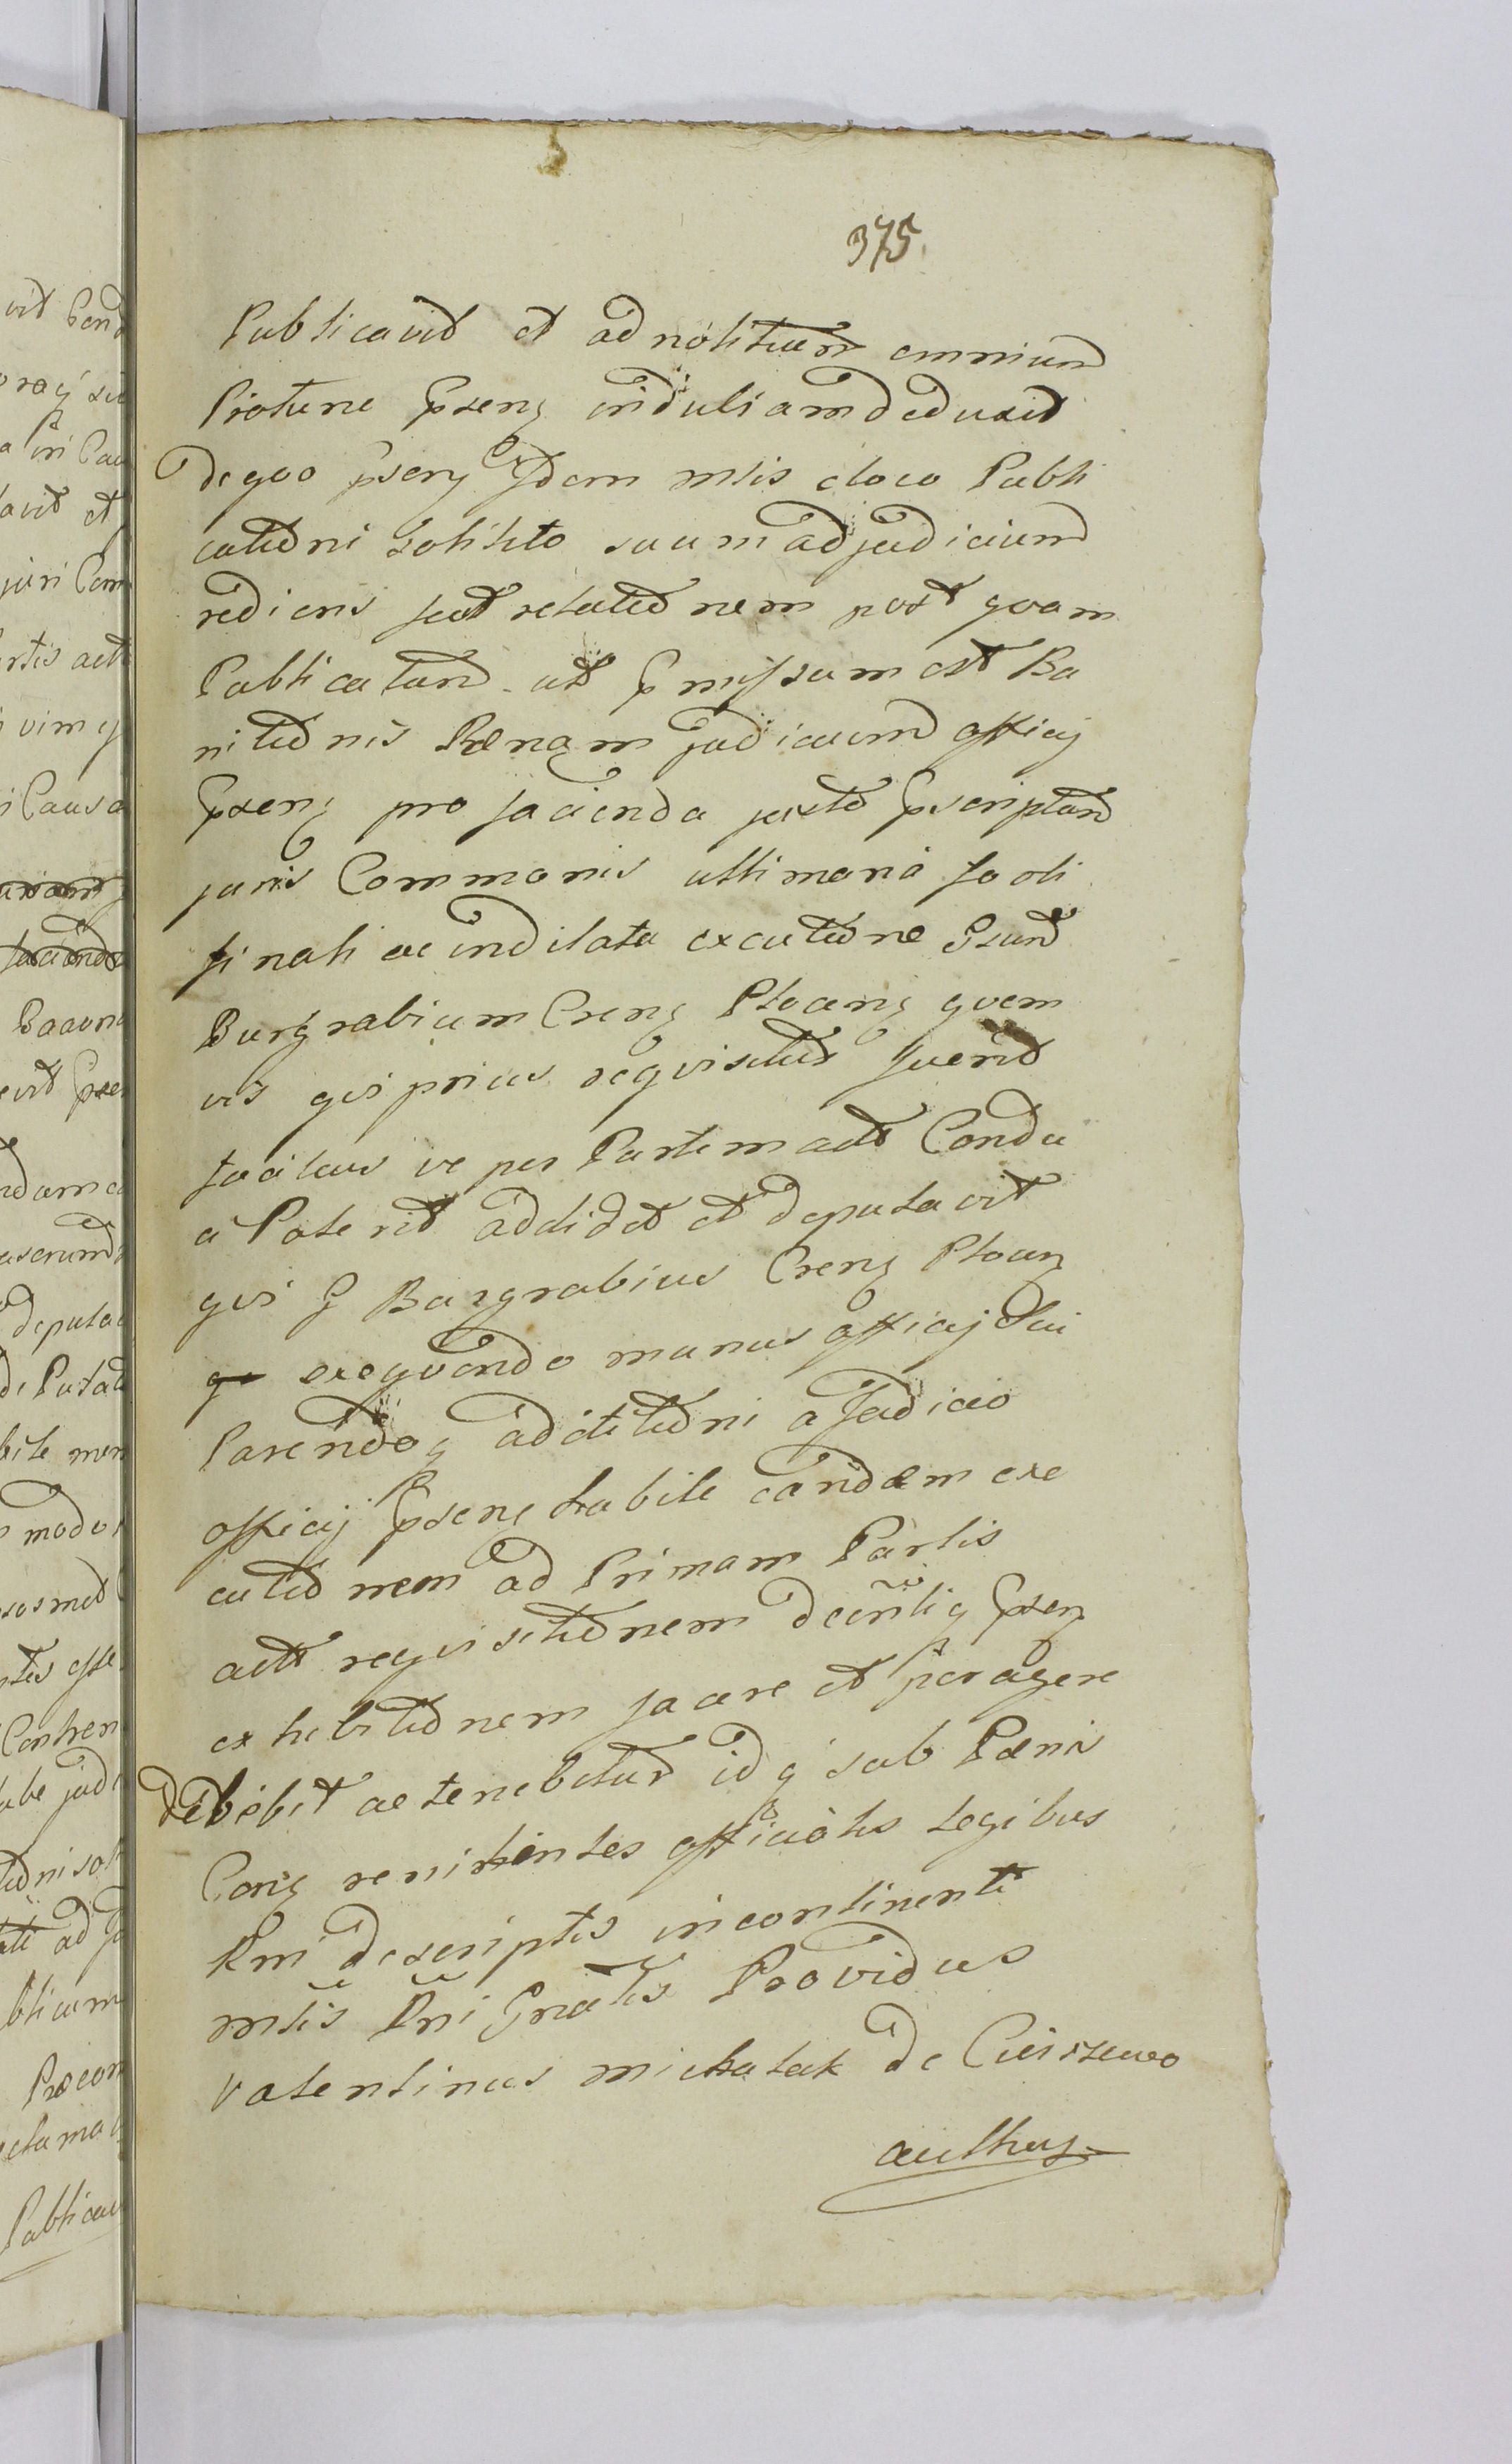 375.
Publicavit et ad notitiam omnium
Protunc Pxeng in Juliam deduxit
de quo Pxeng Idem mtis e loco Publi
cationi solitito suum ad judicium
rediens fecit relationem post quam
Publicatam ut Pmissum est Ba
nitionis Pœnam judicium officij
Pxeng pro facienda juxta Pscriptum
juris Communis ultimaria reali
finali ac indilata excutione Gsum
Burgrabium Creng Ploceng quem
vis qui prius requisitus fuerit
facilius ve per Partem actt Condu
ci Poterit addidit et deputavit
qui G Burgrabius Creng Ploceng
exequendo munus officij sui
Parendoq additioni a Judicio
officij Pxeng habite eandem exe
cutionem ad Primam Partis
actt requisitionem decretiq Pxeng
exhibitionem facere et peragere
debebit ac tenebitur idq sub Pœnis
Cong renitentes officiales legibus
Rni descriptis incontinenti
mtis Rni Gnalis Providus
Valentinus Michalak de Cieiszewo